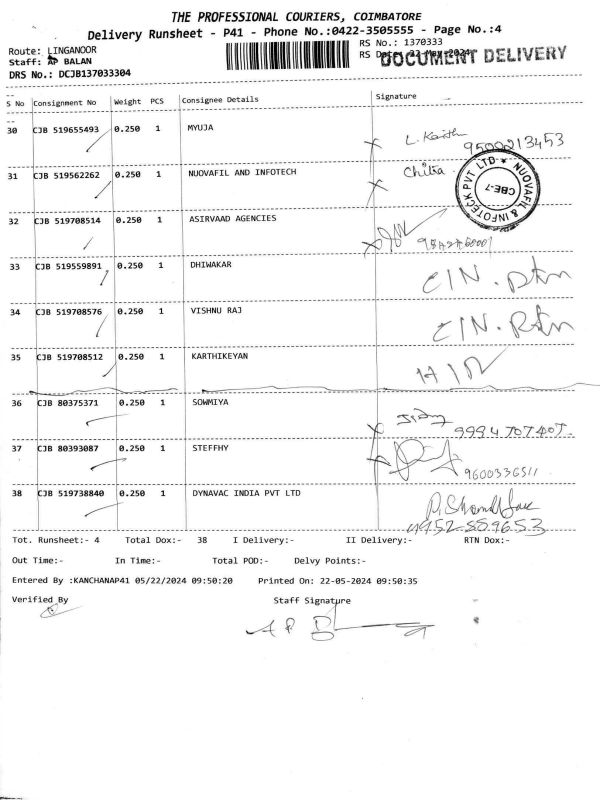 THE PROFESSIONAL COURIERS, COIMBATORE
Delivery Runsheet - P41 - Phone No.:0422-3505555 - Page No.:4
Route: LINGANOOR
RS No.: 1370333
Staff: AP BALAN
RS Date: 22-May-2024
DOCUMENT DELIVERY
DRS No.: DCJB137033304
S No Consignment No Weight PCS Consignee Details Signature
30 CJB 519655493 0.250 1 MYUJA L. Karthi 9500213453
31 CJB 519562262 0.250 1 NUOVAFIL AND INFOTECH Chitra
NUOVAFIL & INFOTECK PVT LTD * CBE-7
32 CJB 519708514 0.250 1 ASIRVAAD AGENCIES
33 CJB 519559891 0.250 1 DHIWAKAR CIN. Rtn
34 CJB 519708576 0.250 1 VISHNU RAJ CIN. Rtn
35 CJB 519708512 0.250 1 KARTHIKEYAN
36 CJB 80375371 0.250 1 SOWMIYA 9994707407
37 CJB 80393087 0.250 1 STEFFHY 9600336511
38 CJB 519738840 0.250 1 DYNAVAC INDIA PVT LTD
Tot. Runsheet:- 4 Total Dox:- 38 I Delivery:- II Delivery:- RTN Dox:-
Out Time:- In Time:- Total POD:- Delvy Points:-
Entered By :KANCHANAP41 05/22/2024 09:50:20 Printed On: 22-05-2024 09:50:35
Verified By Staff Signature